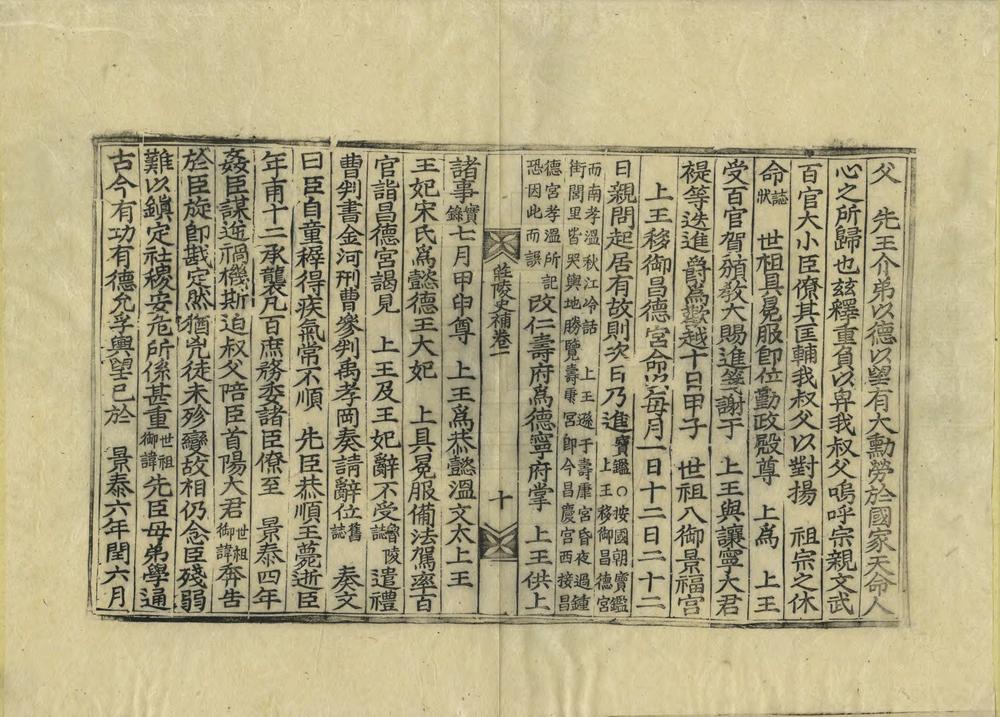 父　先王介弟以德以望有大勳勞於國家天命人
心之所歸也玆釋重負以畀我叔父嗚呼宗親文武
百官大小臣僚其匡輔我叔父以對揚　祖宗之休
命誌狀　世祖具冕服卽位勤政殿尊　上爲　上王
受百官賀頒敎大賜進箋謝于　上王與讓寧大君
禔等迭進爵爲歡越十日甲子　世祖入御景福宮
上王移御昌德宮命以每月一日十二日二十二
日親問起居有故則次日乃進寶鑑○按國朝寶鑑上王移御昌德宮
而南孝溫秋江冷話　上王遜于壽康宮昏夜過鍾
街閭里皆哭輿地勝覽壽康宮卽今昌慶宮西接昌
德宮孝溫所記恐因此而誤改仁壽府爲德寧府掌　上王供上
莊陵史補卷一　十
諸事實錄七月甲申尊　上王爲恭懿溫文太上王
王妃宋氏爲懿德王大妃　上具冕服備法駕率百
官詣昌德宮謁見　上王及王妃辭不受魯陵誌遣禮
曹判書金何刑曹參判禹孝岡奏請辭位舊誌　奏文
曰臣自童穉得疾氣常不順　先臣恭順王薨逝臣
年甫十二承襲凡百庶務委諸臣僚至　景泰四年
姦臣謀逆禍機斯迫叔父陪臣首陽大君世祖御諱奔告
於臣旋卽戡定然猶兇徒未殄變故相仍念臣殘弱
難以鎭定社稷安危所係甚重世祖御諱先臣母弟學通
古今有功有德允孚輿望已於　景泰六年閏六月